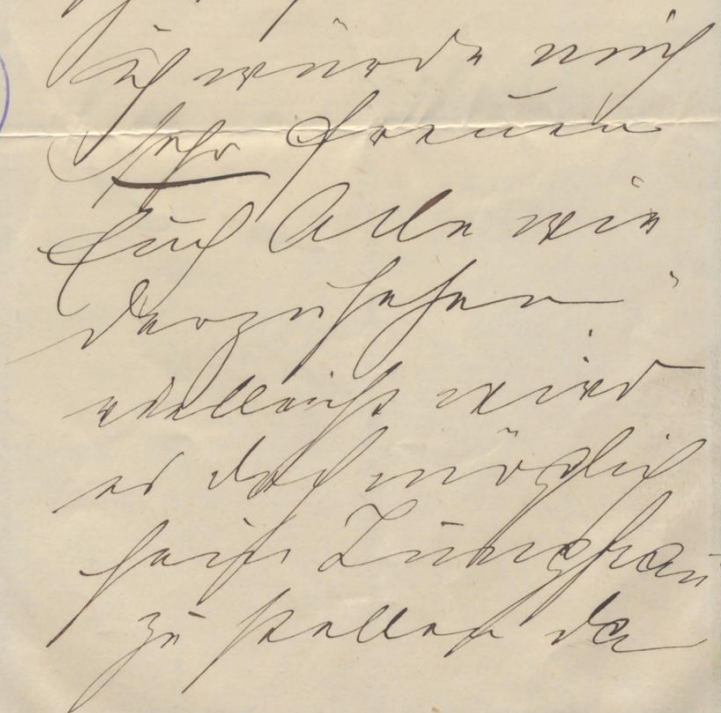 ich würde mich
sehr freuen
Euch Alle wie
derzusehen
vielleicht wird
es doch möglich
sein
zu stellen da